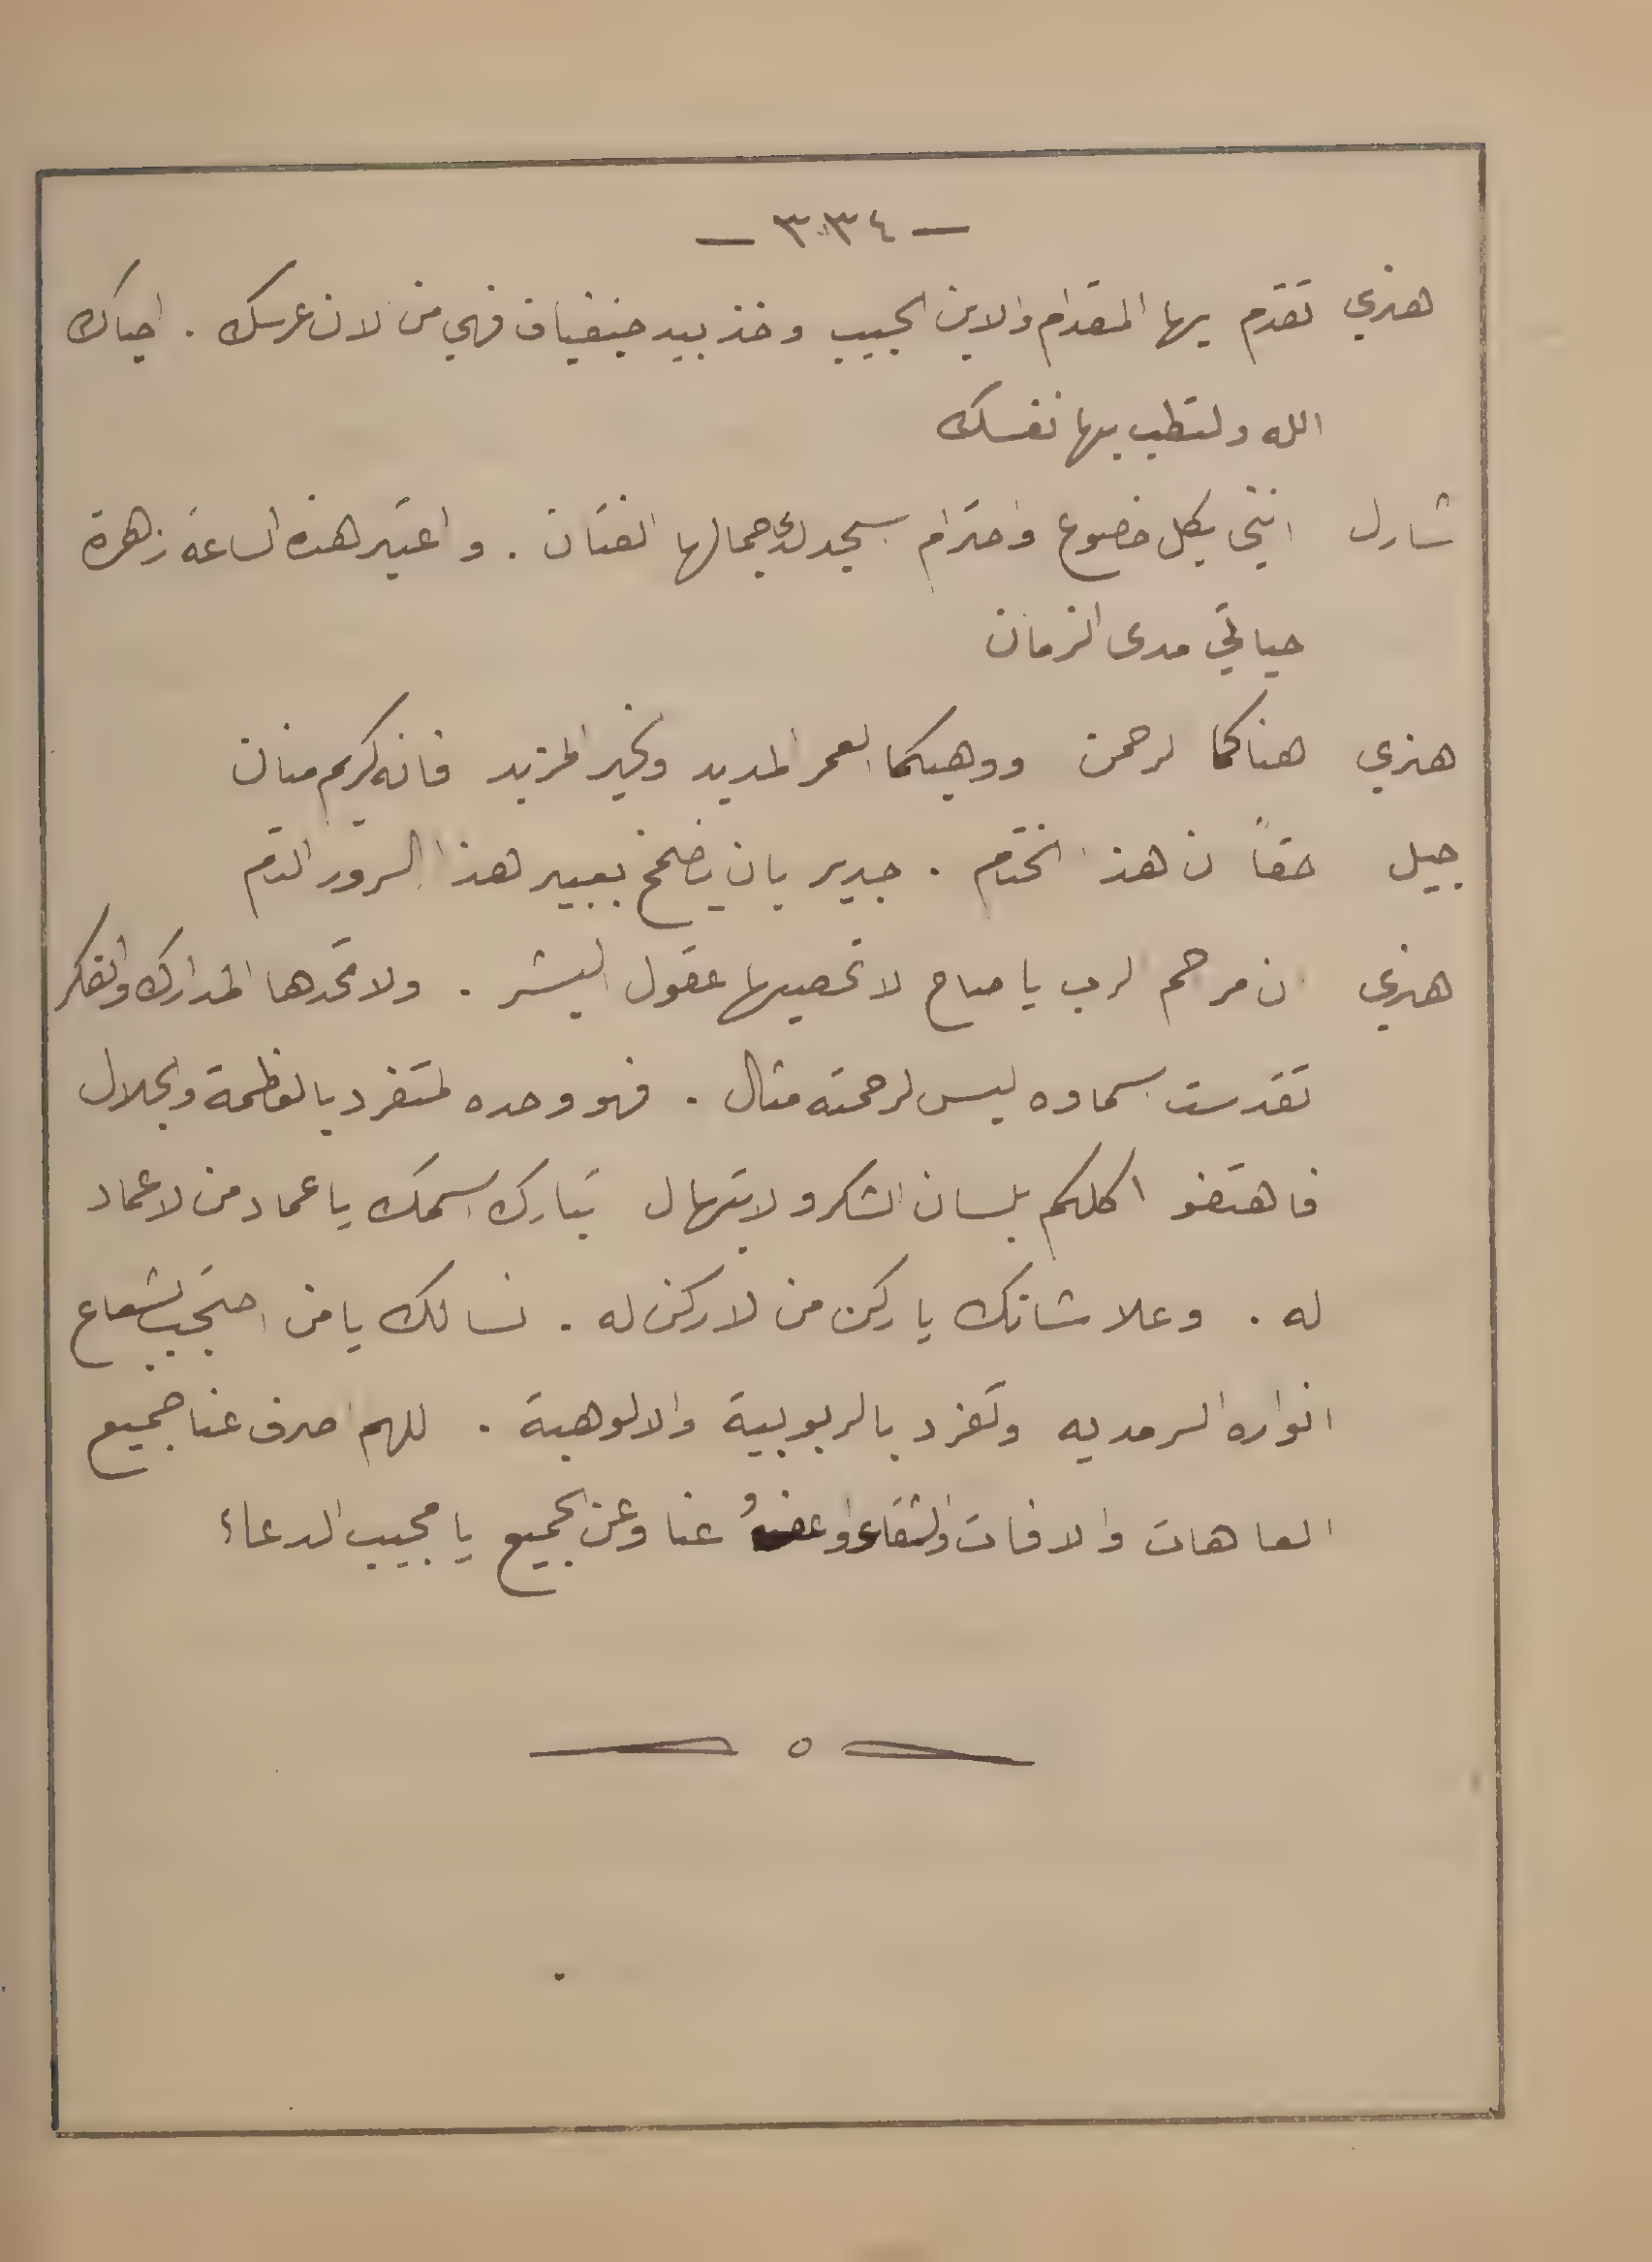 — ٣٣٤ —
هنري تقدم يها المقدام والابن الحبيب وخذ بيد جنفياف فهي من لان عرسك . احياك
الله ولتطب بها نفسك
شارل انني بكل خضوع واحترام سجد لدى جمالها الفتان . واعتبر هذه الساعة زهرة
حياتي مدى الزمان
هنري هناكما لرحمن ووهبكما العمر المديد والخير المزيد فانه كريم منان
جيل حقاً ن هذ الختم . جدير بان يضمخ بعبير هذا السرور التم
هنري ن مرحم لرب يا صاح لا تحصيها عقول البشر . ولا تحدها المدارك والفكر
تقدست سماوه ليس لرحمته مثال . فهو وحده لمتفرد بالعظمة والجلال
فاهتفو اكلكم بلسان الشكر ولابتهال تبارك اسمك يا عماد من لا عماد
له . وعلا شانك يا ركن من لا ركن له . نسالك يا من احتجب بشعاع
انواره السرمديه وتفرد بالربوبية والالوهية . للهم اصرف عنا جميع
العاهات والافات والشقاء واعف عنا وعن الجميع يا مجيب الدعاء